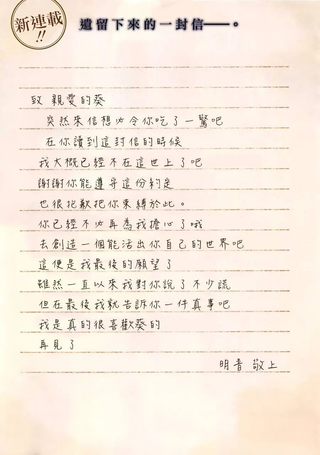 新連載!!
遺留下來的一封信——。
致 親愛的葵
突然來信想必令你吃了一驚吧
在你讀到這封信的時候
我大概已經不在這世上了吧
謝謝你能遵守這份約定
也很抱歉把你束縛於此。
你已經不必再為我擔心了哦
去創造一個能活出你自己的世界吧
這便是我最後的願望了
雖然一直以來我對你說了不少謊
但在最後我就告訴你一件真事吧
我是真的很喜歡葵的
再見了
明音 敬上